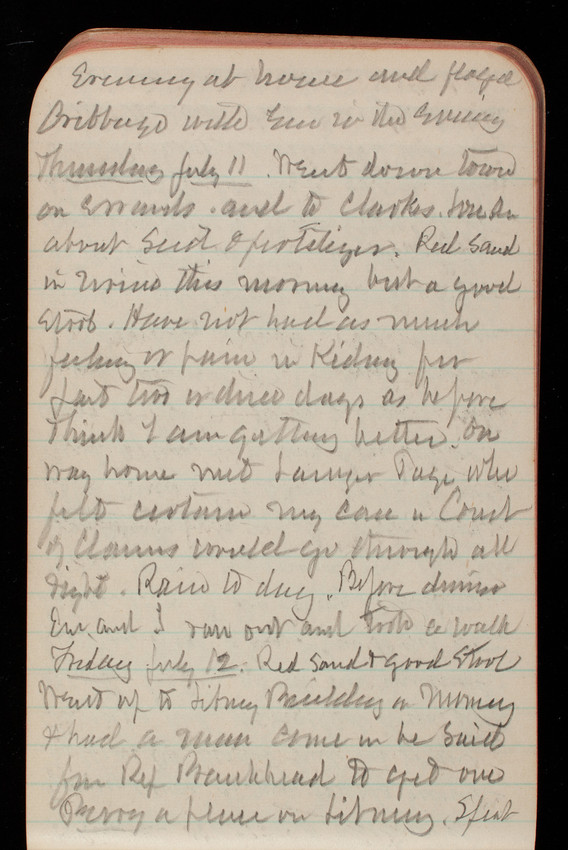 Evening at home and played
Cribbage with Em in the Evening
Thursday July 11. Went down town
on Errands and to Clarkes.
about Seid. Red Sand
in Urine this morning but a good
stool. Have not had as much
feeling or pain in Kidney for
last two or three days as before
think I am getting better. On
way home met Page who
felt certain my case in Court
of Claims would go through all
right. Rain to day. Before dinner
Em and I ran out and took a walk
Friday July 12. Red Sand & good Stool
Went up to Building on Money
& had a man come in he said
from Rep Bankhead to get one
Perry a place on. Spent